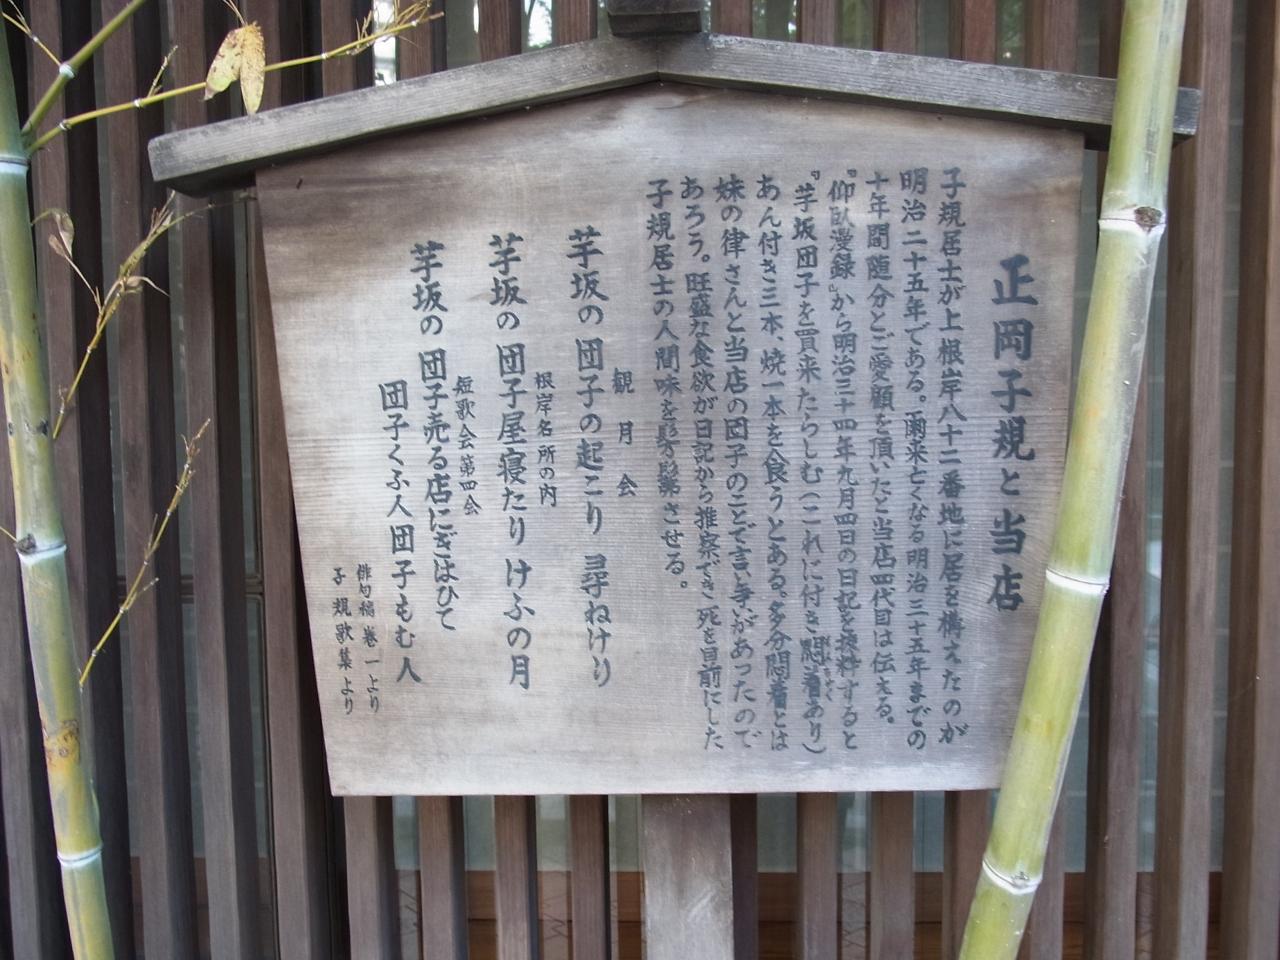 正岡子規と当店
子規居士が上根岸八十二番地に居を構えたのが
明治二十五年である。爾来亡くなる明治三十五年までの
十年間随分とご愛顧を頂いたと当店四代目は伝える。
『仰臥漫録』から明治三十四年九月四日の日記を換料すると
『芋坂団子を買来たらしむ(これに付き悶着あり)
あん付き三本、焼一本を食うとある。多分悶着とは
妹の律さんと当店の団子のことで言い争いがあったので
あろう。旺盛な食欲が日記から推察でき死を目前にした
子規居士の人間味を彷彿させる。
観月会
芋坂の団子の起こり尋ねけり
根岸名所の内
芋坂の団子屋寝たりけふの月
短歌会第四会
芋坂の団子売る店にぎはひて
団子くふ人団子もむ人
俳句稿巻一より
子規歌集より